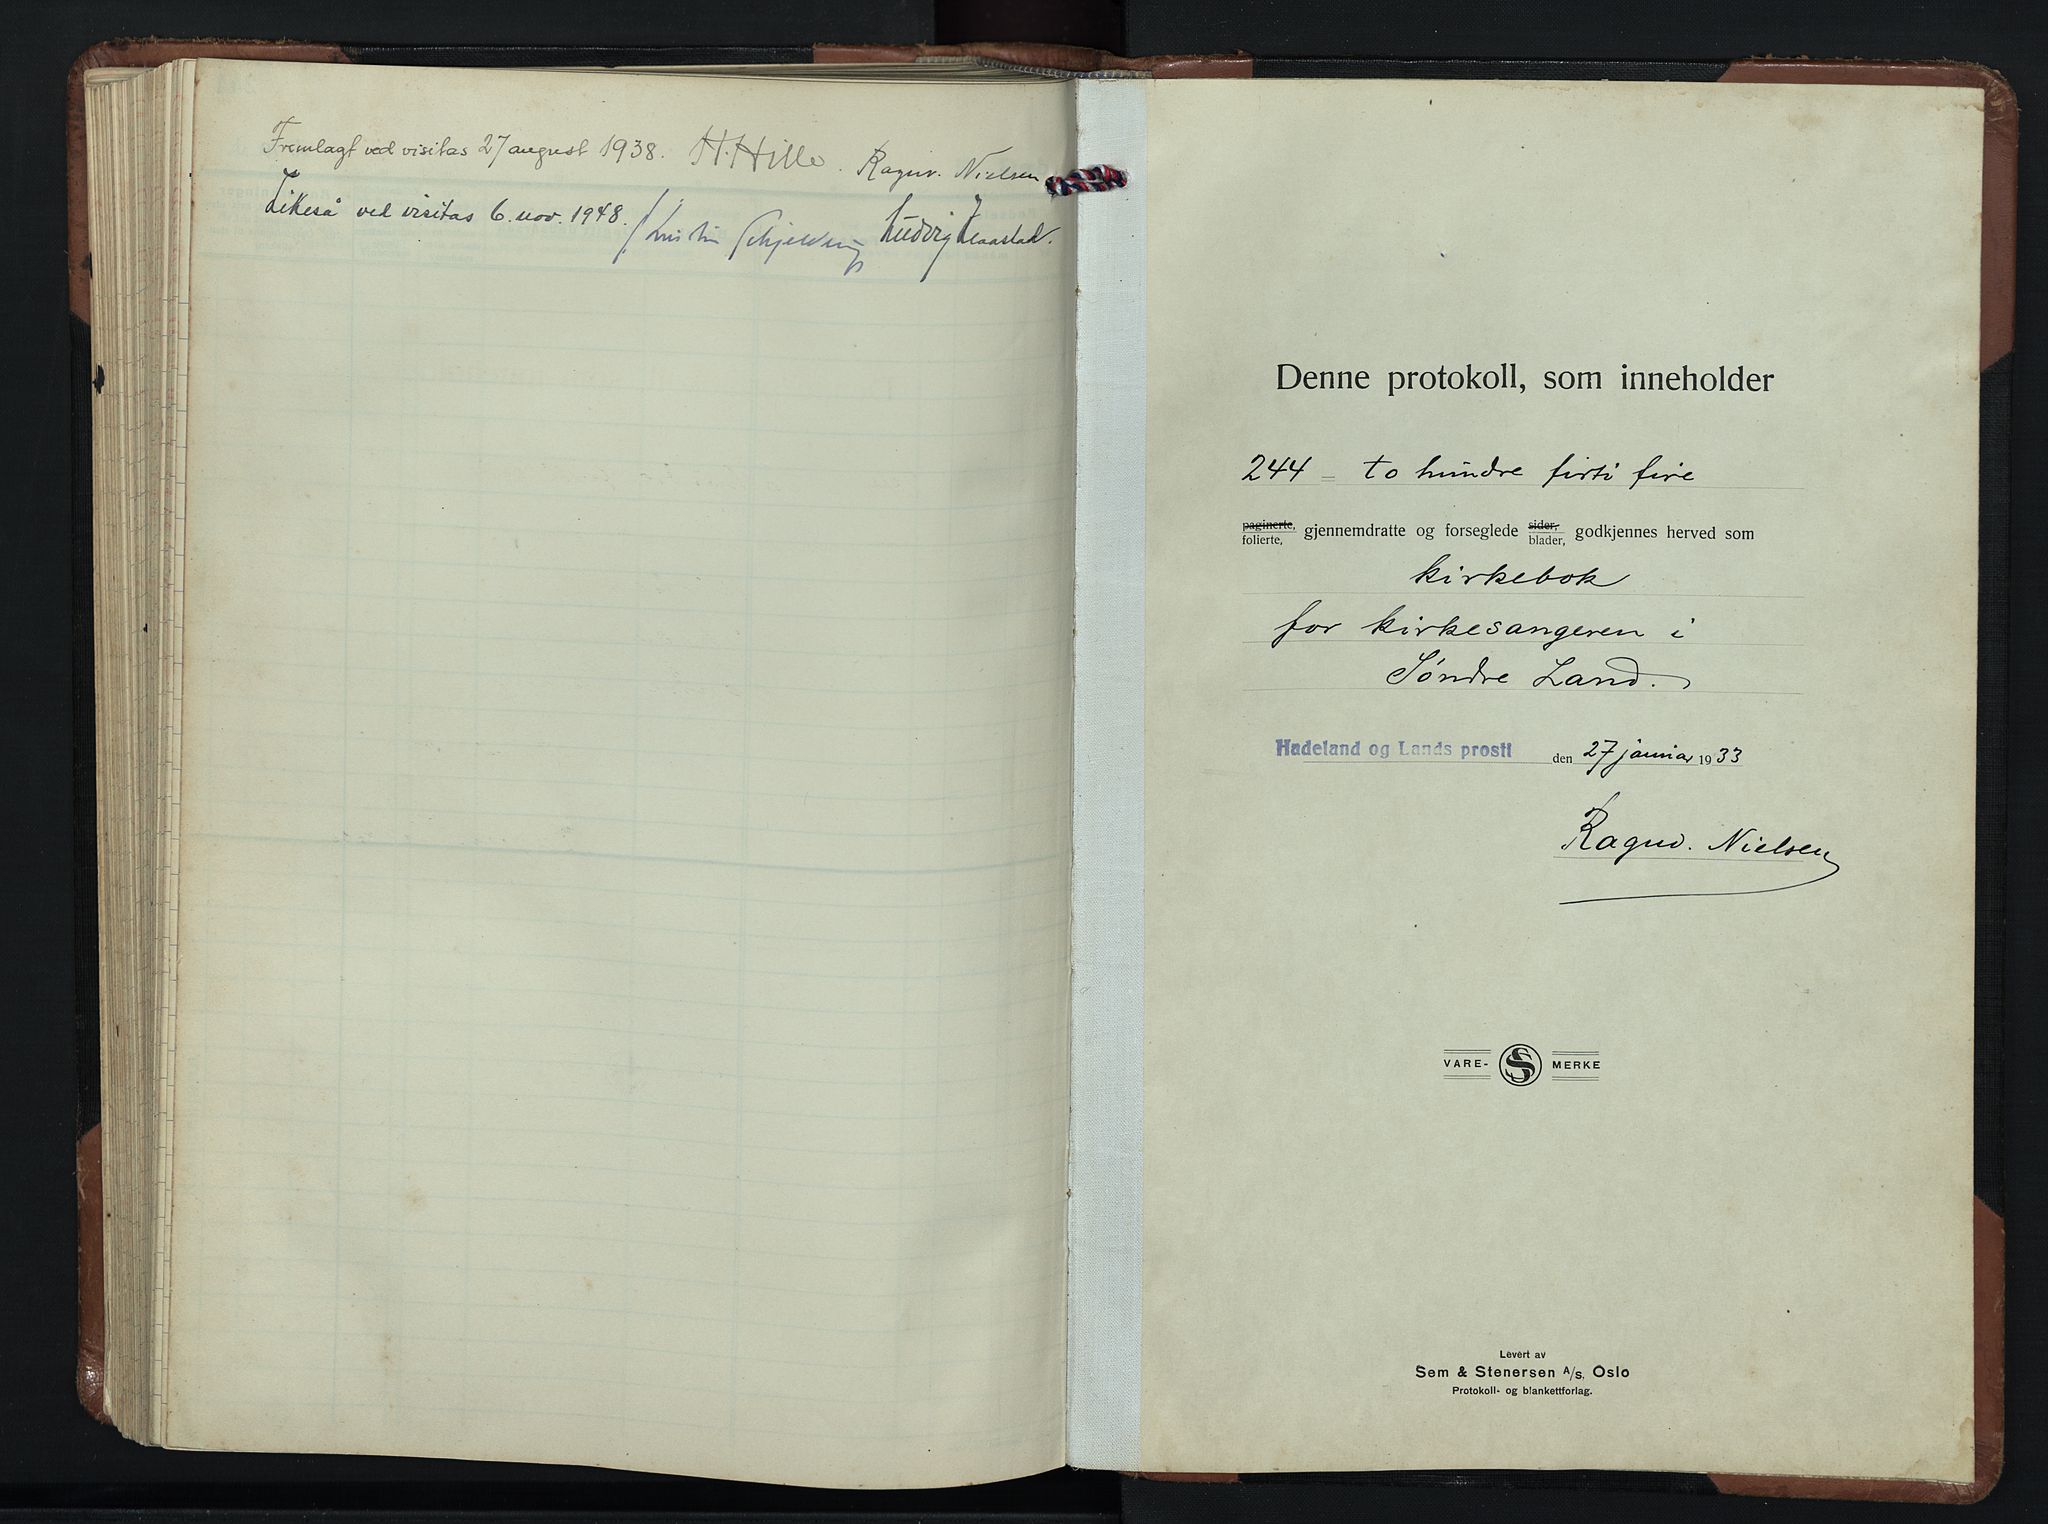 Fremlagt ved visitas 27 august 1938. H. Hille. Ragnv. Nielsen
Likeså ved visitas 6. nov. 1948. Kristian Schjelderup Ludvig
Denne protokoll, som inneholder
244 = to hundre firti fire
paginerte, folierte, gjennemdratte og forseglede sider, blader, godkjennes herved som
kirkebok
for kirkesangeren i
Søndre Land.
Hadeland og Lands prosti den 27 januar 1933
Ragnv. Nielsen
VARE- S MERKE
Levert av
Sem & Stenersen A/s, Oslo
Protokoll- og blankettforlag.